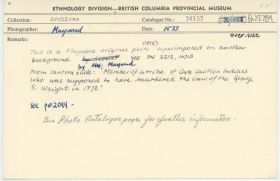 ETHNOLOGY DIVISION—BRITISH COLUMBIA PROVINCIAL MUSEUM
Classifier: Archives Catalogue No.: 34153
over-size
Photographer: Maynard Date: 1873
Remarks:
This is a Maynard original photo superimposed on another
background by Mrs. Maynard see PN
From lantern slide: "Member of a tribe of Cape Caution Indians
who was supposed to have murdered the crew of the George
S. Wright in 1873."
See PN 2094.
See Photo Catalogue page for further information.